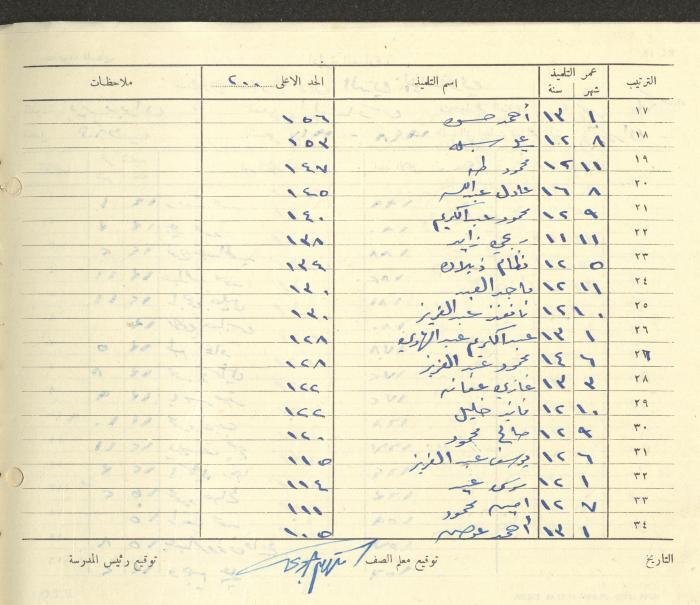 الترتيب عمر التلميذ شهر سنة اسم التلميذ الحد الاعلى ٢٠٠ ملاحظات
١٧ ١ ١٣ أحمد حسون ١٥٦
١٨ ٨ ١٢ علي ١٥٣
١٩ ١١ ١٢ محمود طه ١٤٧
٢٠ ٨ ١٦ عادل عبدالله ١٤٥
٢١ ٩ ١٢ محمود عبدالكريم ١٤٠
٢٢ ١١ ١١ ربحي زايد ١٣٨
٢٣ ٥ ١٢ نظام ذيلان ١٣٤
٢٤ ١١ ١٢ ماجد العبد ١٣٠
٢٥ ١٠ ١٢ نافذ عبد العزيز ١٣٠
٢٦ ١ ١٣ عبد الكريم عبد الهادي ١٢٨
٢٧ ٦ ١٤ محمود عبد العزيز ١٢٨
٢٨ ٣ ١٣ غازي عفانه ١٢٢
٢٩ ١٠ ١٢ فايز خليل ١٢٢
٣٠ ٩ ١٢ صالح محمود ١٢٠
٣١ ٦ ١٢ يوسف عبد العزيز ١١٥
٣٢ ١ ١٢ موسى عيد ١١٤
٣٣ ٧ ١٢ امين محمود ١١١
٣٤ ١ ١٣ أحمد عوض ١٠٥
التاريخ توقيع معلم الصف توقيع رئيس المدرسة